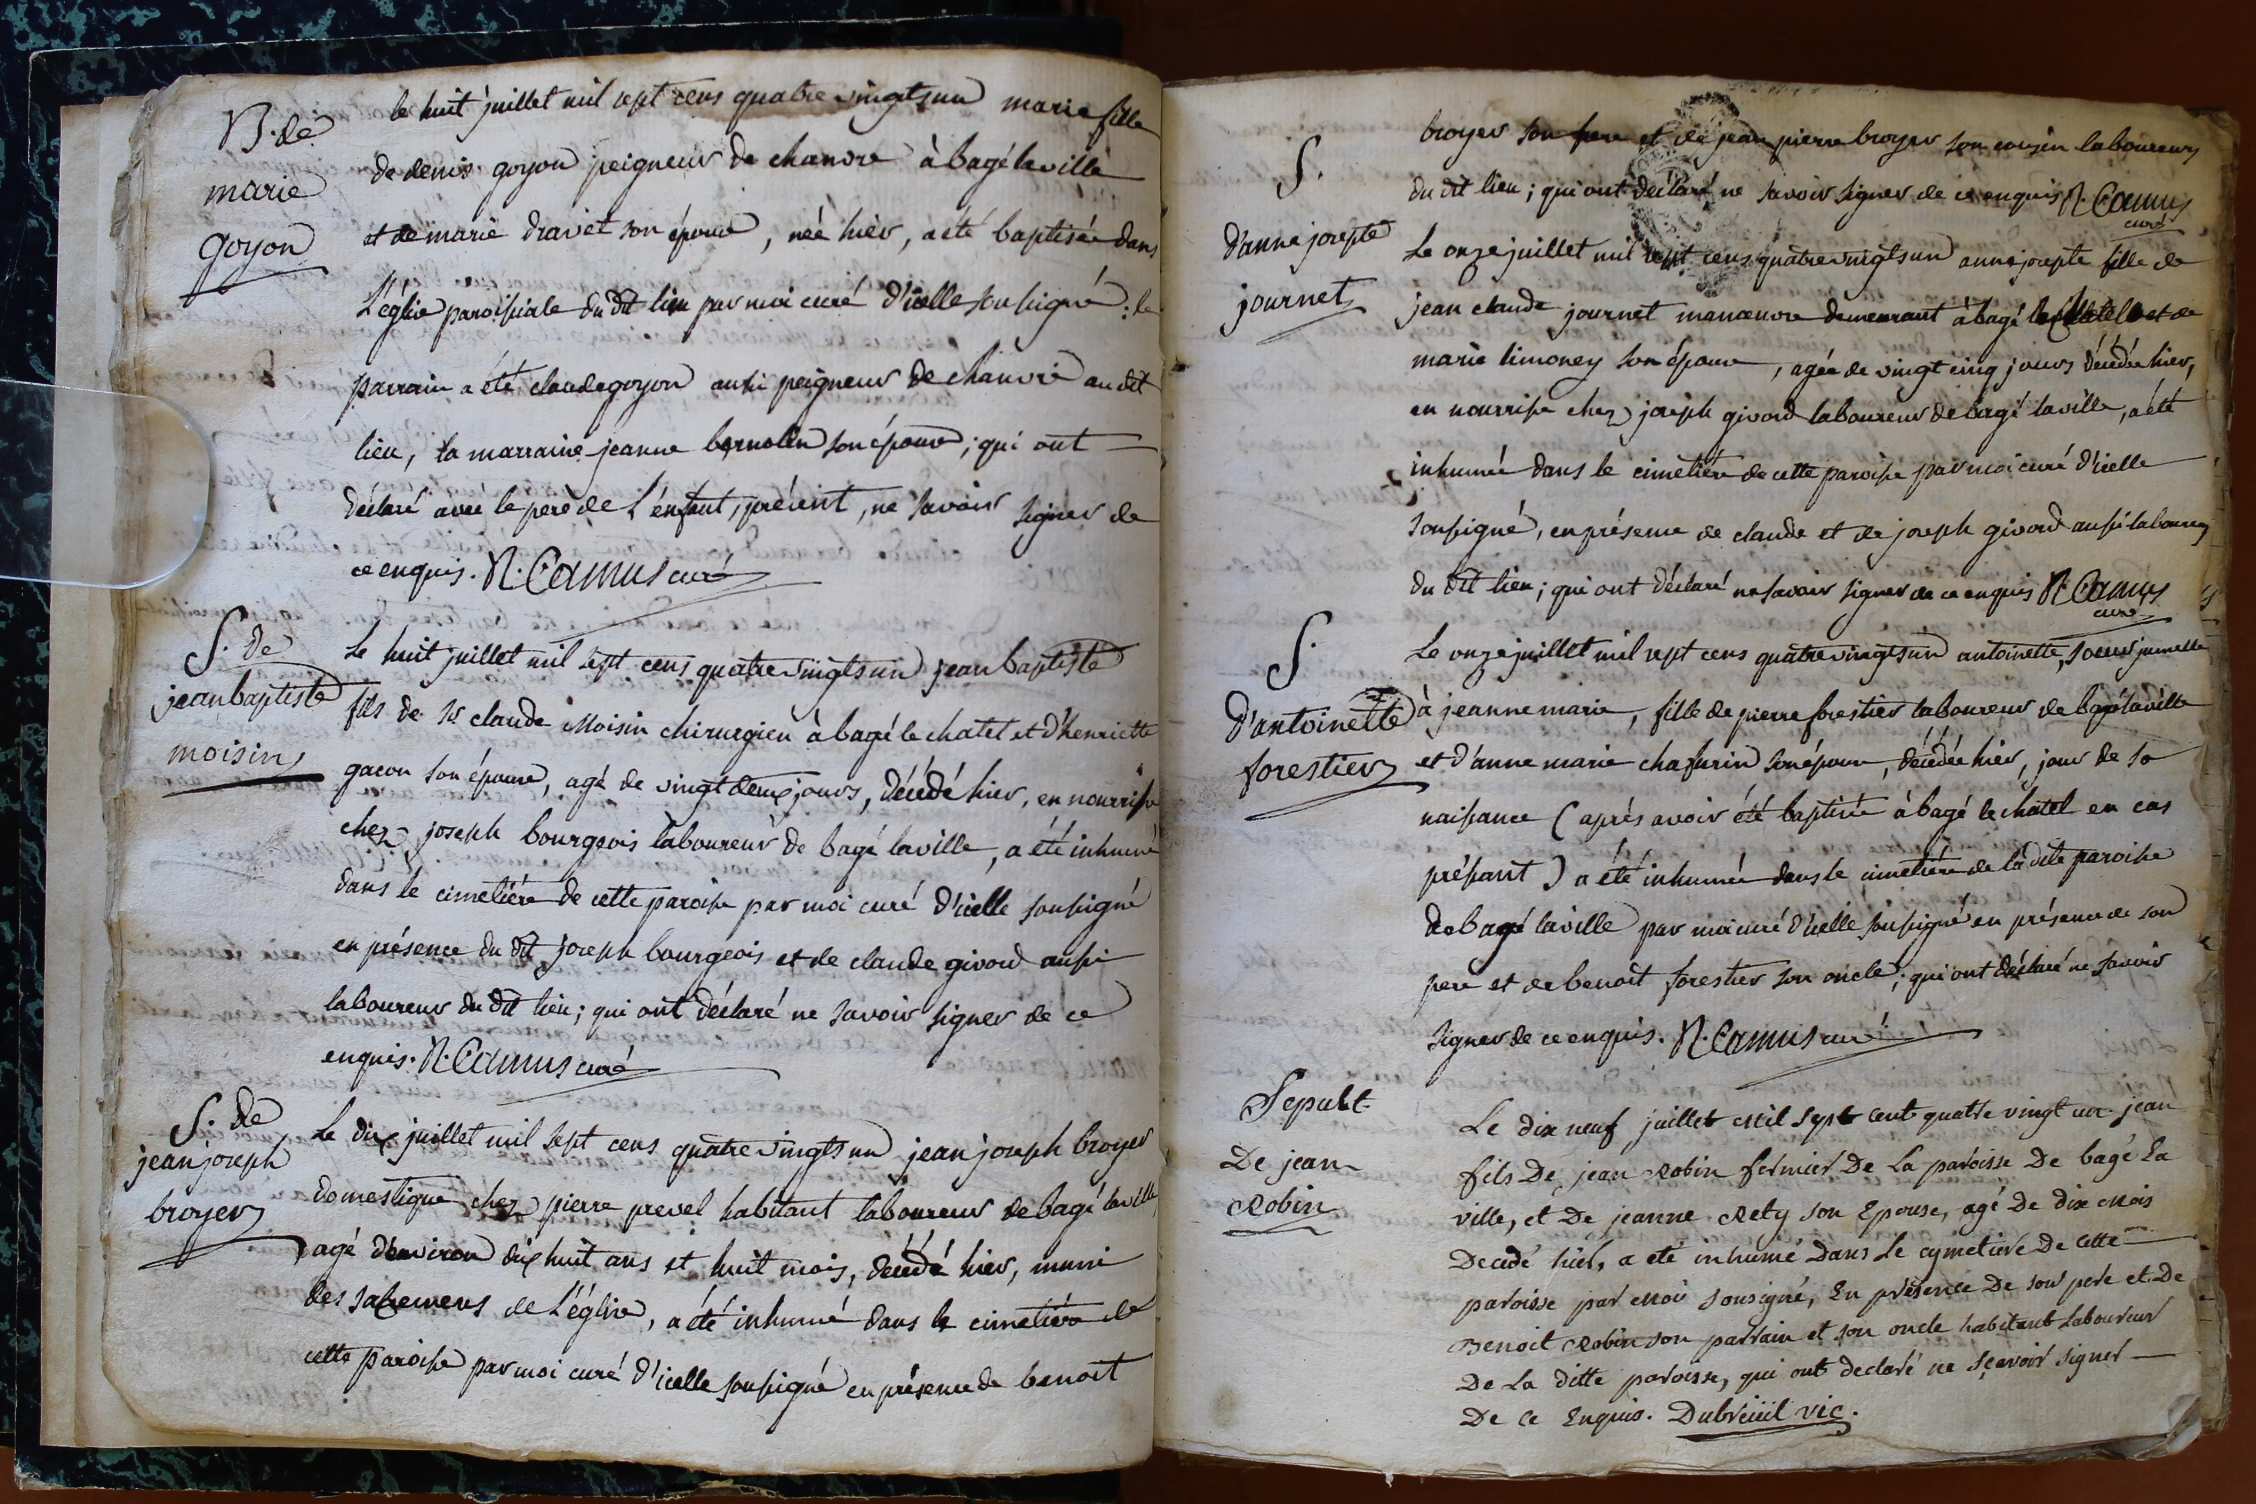 B. de
marie
goyon
le huit juillet mil sept cens quatre vingts un marie fille
de denis goyon peigneur de chanvre à bagé la ville
et de marie dravet son épouse, née hier, a été baptisée dans
L'église paroissiale du dit lieu par moi curé d'icelle soussigné : le
parrain a été claude goyon aussi peigneur de chanvre au dit
lieu, la marraine jeanne bernolin son épouse ; qui ont
déclaré avec le pere de L'enfant, présent, ne savoir signer de
ce enquis. N. Camus curé
S. de
jean baptiste
moisin
Le huit juillet mil sept cens quatre vingts un jean baptiste
fils de sr claude Moisin chirurgien à bagé le chatel et d'henriette
gacon son épouse, agé de vingt deux jours, décédé hier, en nourrisse
chez joseph bourgeois laboureur de bagé la ville, a été inhumé
dans le cimetiére de cette paroisse par moi curé d'icelle soussigné
en présence du dit joseph bourgeois et de claude givord aussi
laboureur du dit lieu ; qui ont déclaré ne savoir signer de ce
enquis. N. Camus curé
S. de
jean joseph
broyer
Le dix juillet mil sept cens quatre vingts un jean joseph broyer
domestique chez pierre prevel habitant laboureur de bagé la ville,
agé d'environ dix huit ans et huit mois, décédé hier, muni
des sacremens de L'église, a été inhumé dans le cimetiére de
cette paroisse par moi curé d'icelle soussigné en présence de benoit
broyer son frere et de jean pierre broyer son cousin laboureurs
du dit lieu ; qui ont déclaré ne savoir signer de ce enquis N. Camus
curé
S.
d'anne josepte
journet
Le onze juillet mil sept cens quatre vingts un anne josepte fille de
jean claude journet manœuvre demeurant à bagé le Chatel et de
marie limoney son épouse, agée de vingt cinq jours décédée hier,
en nourrisse chez joseph givord laboureur de bagé la ville, a été
inhumée dans le cimetiére de cette paroisse par moi curé d'icelle
soussigné, en présence de claude et de joseph givord aussi laboureurs
du dit lieu ; qui ont déclaré ne savoir signer de ce enquis N. Camus
curé
S.
d'antoinette
forestier
Le onze juillet mil sept cens quatre vingts un antoinette, soeur jumelle
à jeanne marie, fille de pierre forestier laboureur de bagé la ville
et d'anne marie chafurin son épouse, décédée hier, jour de sa
naissance (après avoir été baptisée à bagé le chatel en cas
pressant) a été inhumée dans le cimetiére de la dite paroisse
de bagé la ville par moi curé d'icelle soussigné en présence de son
pere et de benoit forestier son oncle ; qui ont déclaré ne savoir
signer de ce enquis. N. Camus curé
Sepult.
De jean
Robin
Le dix neuf juillet mil sept cent quatre vingt un jean
fils De jean Robin fermier De La paroisse De bagé La
ville, et De jeanne Rety son Epouse, agé De dix mois
Decedé hier, a eté inhumé Dans Le cymetiere De cette
paroisse par moi sousigné, En présence De son pere et De
Benoit Robin son parrain et son oncle habitant Laboureur
De La ditte paroisse, qui ont declaré ne sçavoir signer
De ce Enquis. Dubreüil vic.